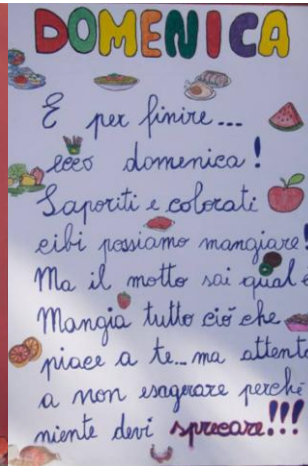 DOMENICA
E per finire...
ecco domenica!
Saporiti e colorati
cibi possiamo mangiare!
Ma il motto sai qual è
Mangia tutto ciò che
piace a te... ma attento
a non esagerare perchè
niente devi sprecare!!!